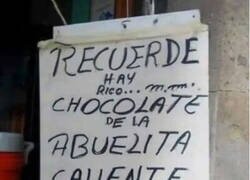 RECUERDE
HAY
RICO... m.m.
CHOCOLATE
DE LA
ABUELITA
CALIENTE